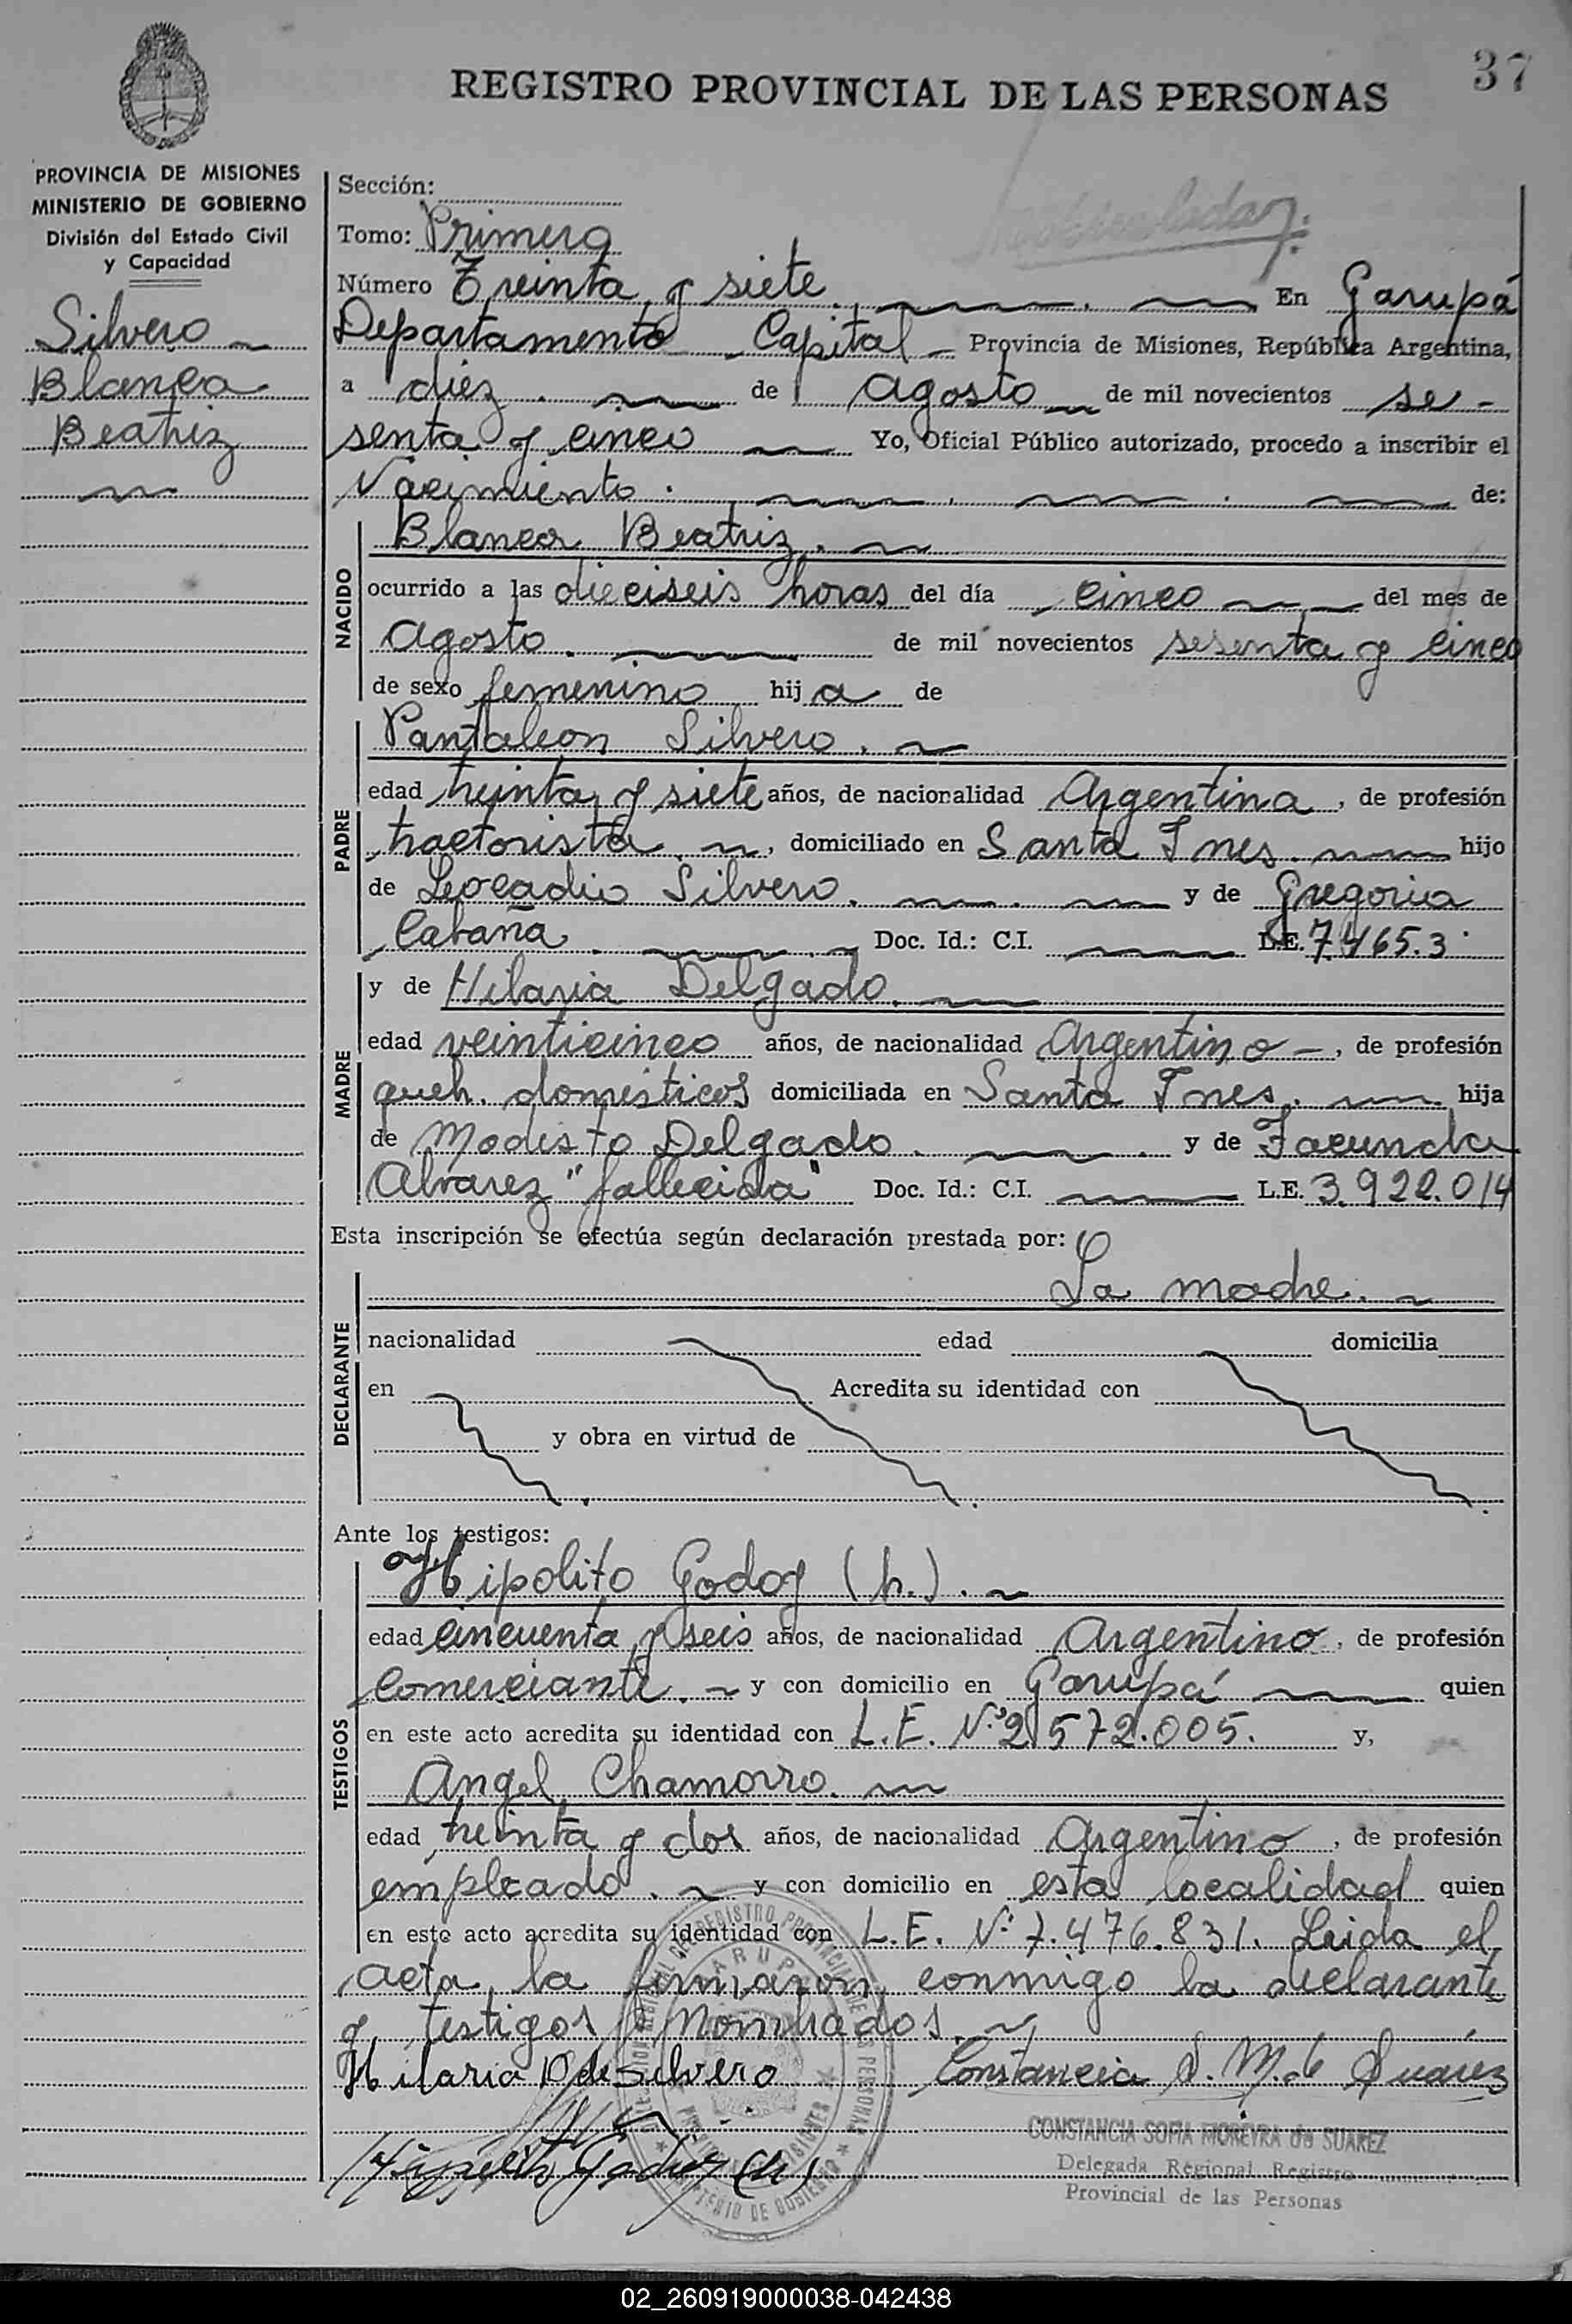 37
REGISTRO PROVINCIAL DE LAS PERSONAS
PROVINCIA DE MISIONES
MINISTERIO DE GOBIERNO
División del Estado Civil
y Capacidad
Silvero
Blanca
Beatriz
Sección:
Tomo: Primero
Número Treinta y siete. En Garupá
Departamento Capital - Provincia de Misiones, República Argentina,
a diez. de agosto de mil novecientos se-
senta y cinco Yo, Oficial Público autorizado, procedo a inscribir el
Nacimiento. de:
NACIDO
Blanca Beatriz.
ocurrido a las dieciseis horas del día cinco del mes de
agosto. de mil novecientos sesenta y cinco
de sexo femenino hija de
PADRE
Pantaleon Silvero.
edad treinta y siete años, de nacionalidad Argentina, de profesión
tractorista, domiciliado en Santa Ines. hijo
de Leocadio Silvero. y de Gregoria
Cabaña. Doc. Id.: C.I. L.E. 7.465.3
MADRE
y de Hilaria Delgado.
edad veinticinco años, de nacionalidad Argentino -, de profesión
queh. domésticos domiciliada en Santa Ines. hija
de Modesto Delgado. y de Facunda
Alvarez "fallecida" Doc. Id.: C.I. L.E. 3.922.014
Esta inscripción se efectúa según declaración prestada por:
DECLARANTE
La madre.
nacionalidad edad domicilia
en Acredita su identidad con
y obra en virtud de
Ante los testigos:
TESTIGOS
Hipolito Godoy (h.).
edad cincuenta y seis años, de nacionalidad Argentino, de profesión
comerciante. y con domicilio en Garupá quien
en este acto acredita su identidad con L.E. N° 2.572.005. y,
Angel Chamorro.
edad treinta y dos años, de nacionalidad Argentino, de profesión
empleado. y con domicilio en esta localidad quien
en este acto acredita su identidad con L.E. N° 7.476.831. Leida el
acta, la firmaron conmigo la declarante
y testigos nombrados.
Hilaria D de Silvero Constancia S. M. de Suárez
CONSTANCIA SOFIA MOREYRA de SUAREZ
Delegada Regional Registro
Provincial de las Personas
Hipolito Godoy (h)
02_260919000038-042438